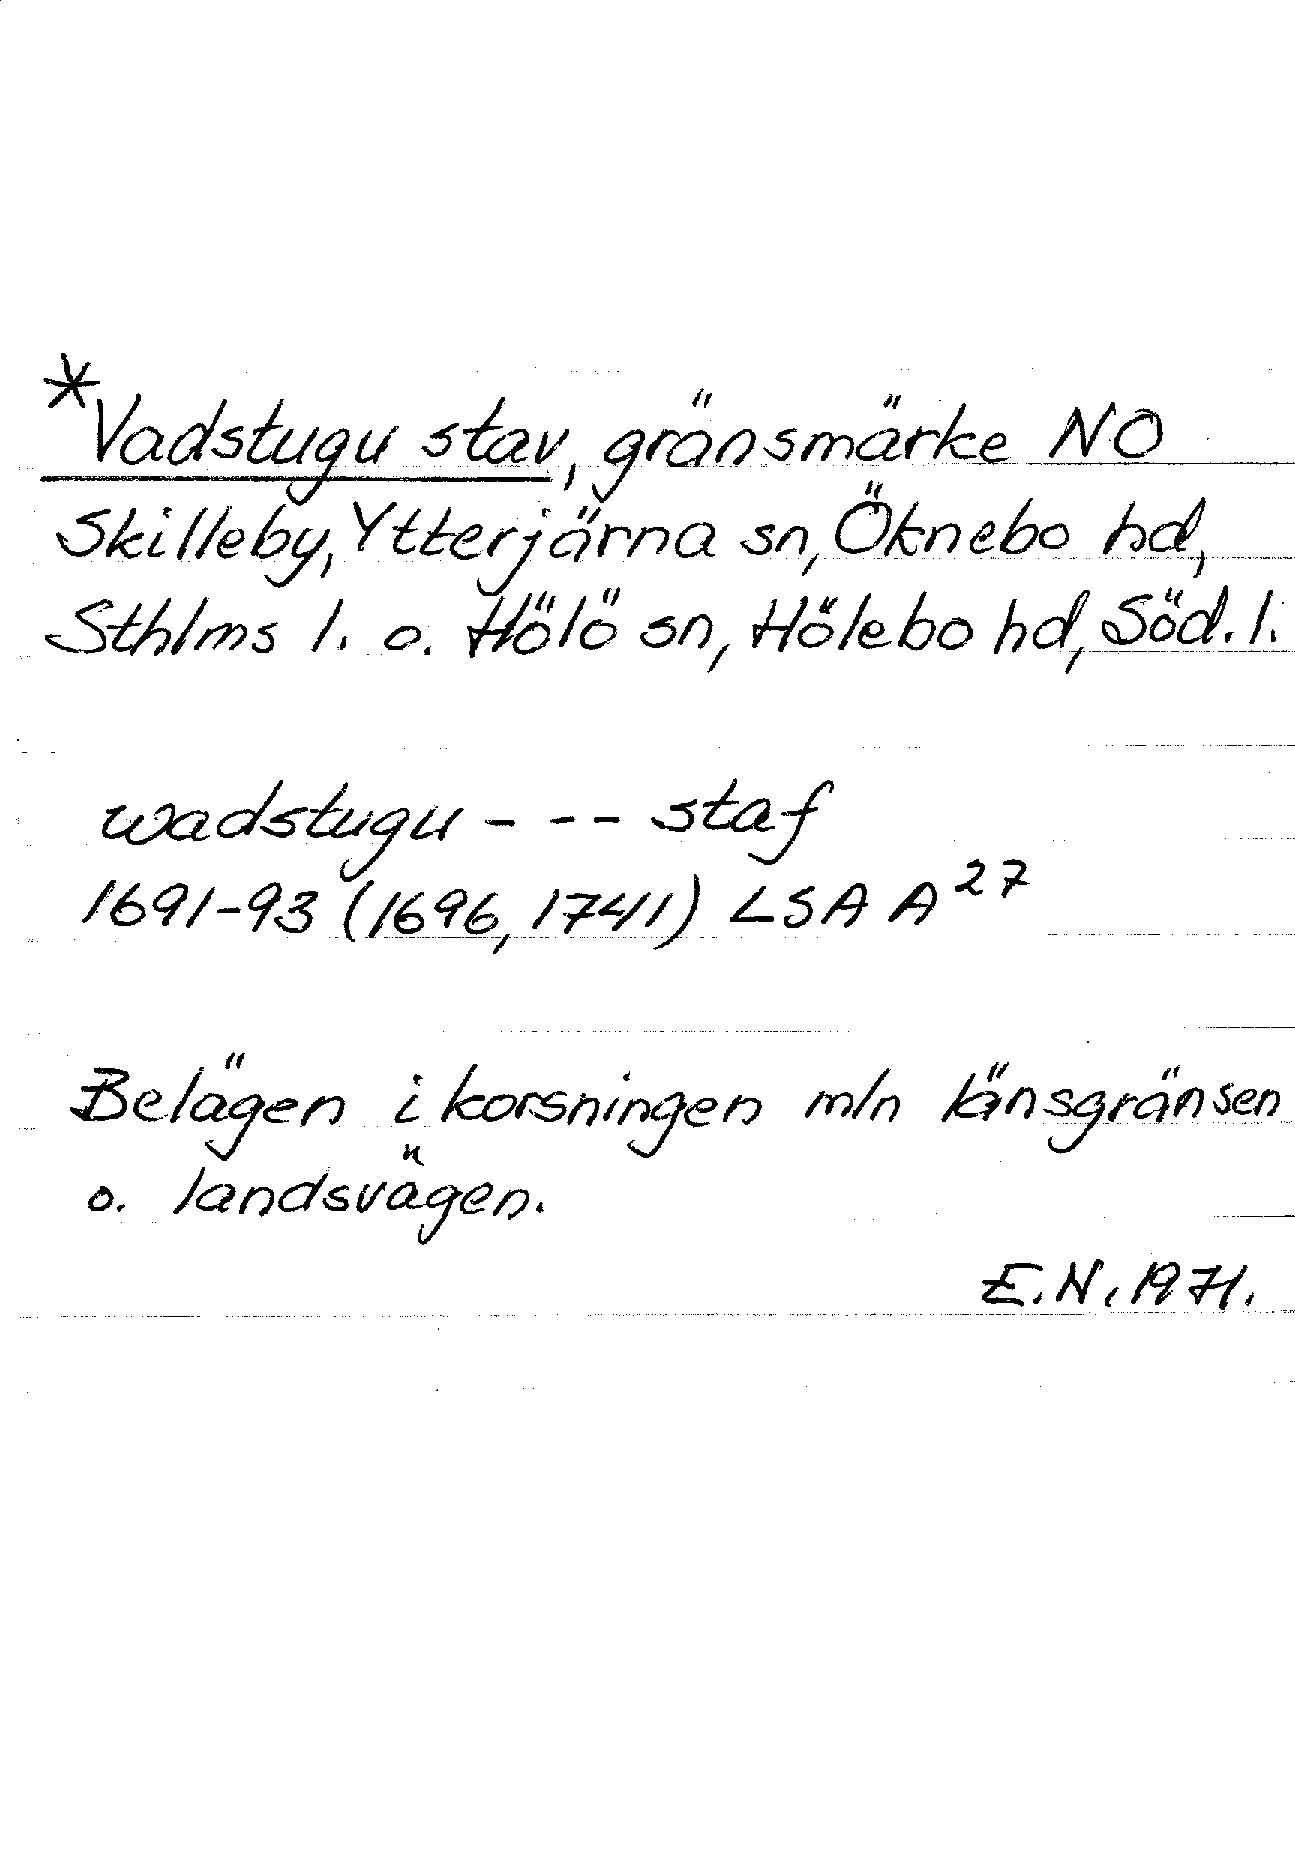 *Vadstugu stav, gränsmärke NO
Skilleby, Ytterjärna sn, Öknebo hd,
Sthlms l. o. Hölö sn, Hölebo hd, Söd. l.
wadstugu - - - staf
1691-93 (1696, 1741) LSA A²⁷
Belägen i korsningen mln länsgränsen
o. landsvägen.
E.N. 1971.